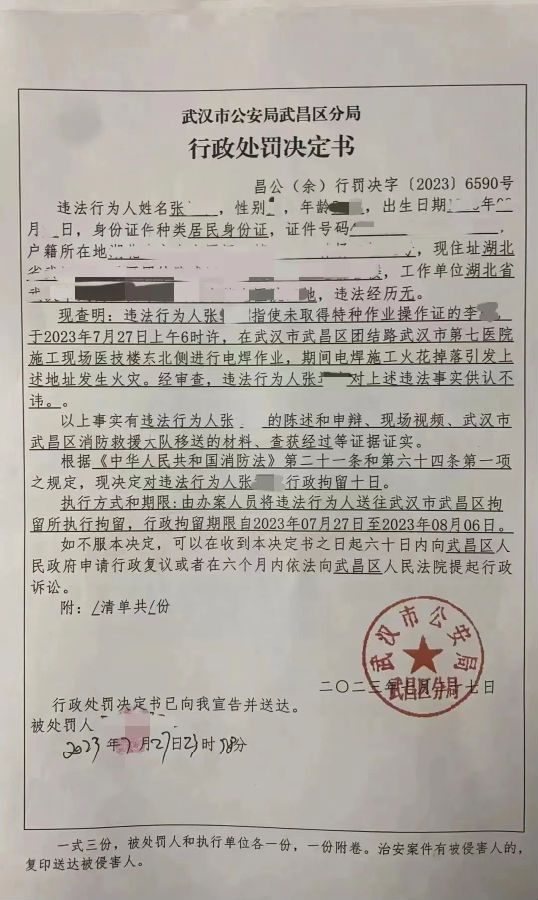 武汉市公安局武昌区分局
行政处罚决定书
昌公（余）行罚决字〔2023〕6590号
违法行为人姓名张 ，性别 ，年龄 ，出生日期 年
月 日，身份证件种类居民身份证，证件号码
户籍所在地 ，现住址湖北
省 ，工作单位湖北省
武 地，违法经历无。
现查明：违法行为人张 指使未取得特种作业操作证的李
于2023年7月27日上午6时许，在武汉市武昌区团结路武汉市第七医院
施工现场医技楼东北侧进行电焊作业，期间电焊施工火花掉落引发上
述地址发生火灾。经审查，违法行为人张 对上述违法事实供认不
讳。。
以上事实有违法行为人张 的陈述和申辩、现场视频、武汉市
武昌区消防救援大队移送的材料、查获经过等证据证实。
根据《中华人民共和国消防法》第二十一条和第六十四条第一项
之规定，现决定对违法行为人张 行政拘留十日。
执行方式和期限：由办案人员将违法行为人送往武汉市武昌区拘
留所执行拘留，行政拘留期限自2023年07月27日至2023年08月06日。
如不服本决定，可以在收到本决定书之日起六十日内向武昌区人
民政府申请行政复议或者在六个月内依法向武昌区人民法院提起行政
诉讼。
附：/清单共/份
武汉市公安局
武昌区分局
二〇二三年七月二十七日
行政处罚决定书已向我宣告并送达。
被处罚人
2023年7月27日23时58分
一式三份，被处罚人和执行单位各一份，一份附卷。治安案件有被侵害人的，
复印送达被侵害人。